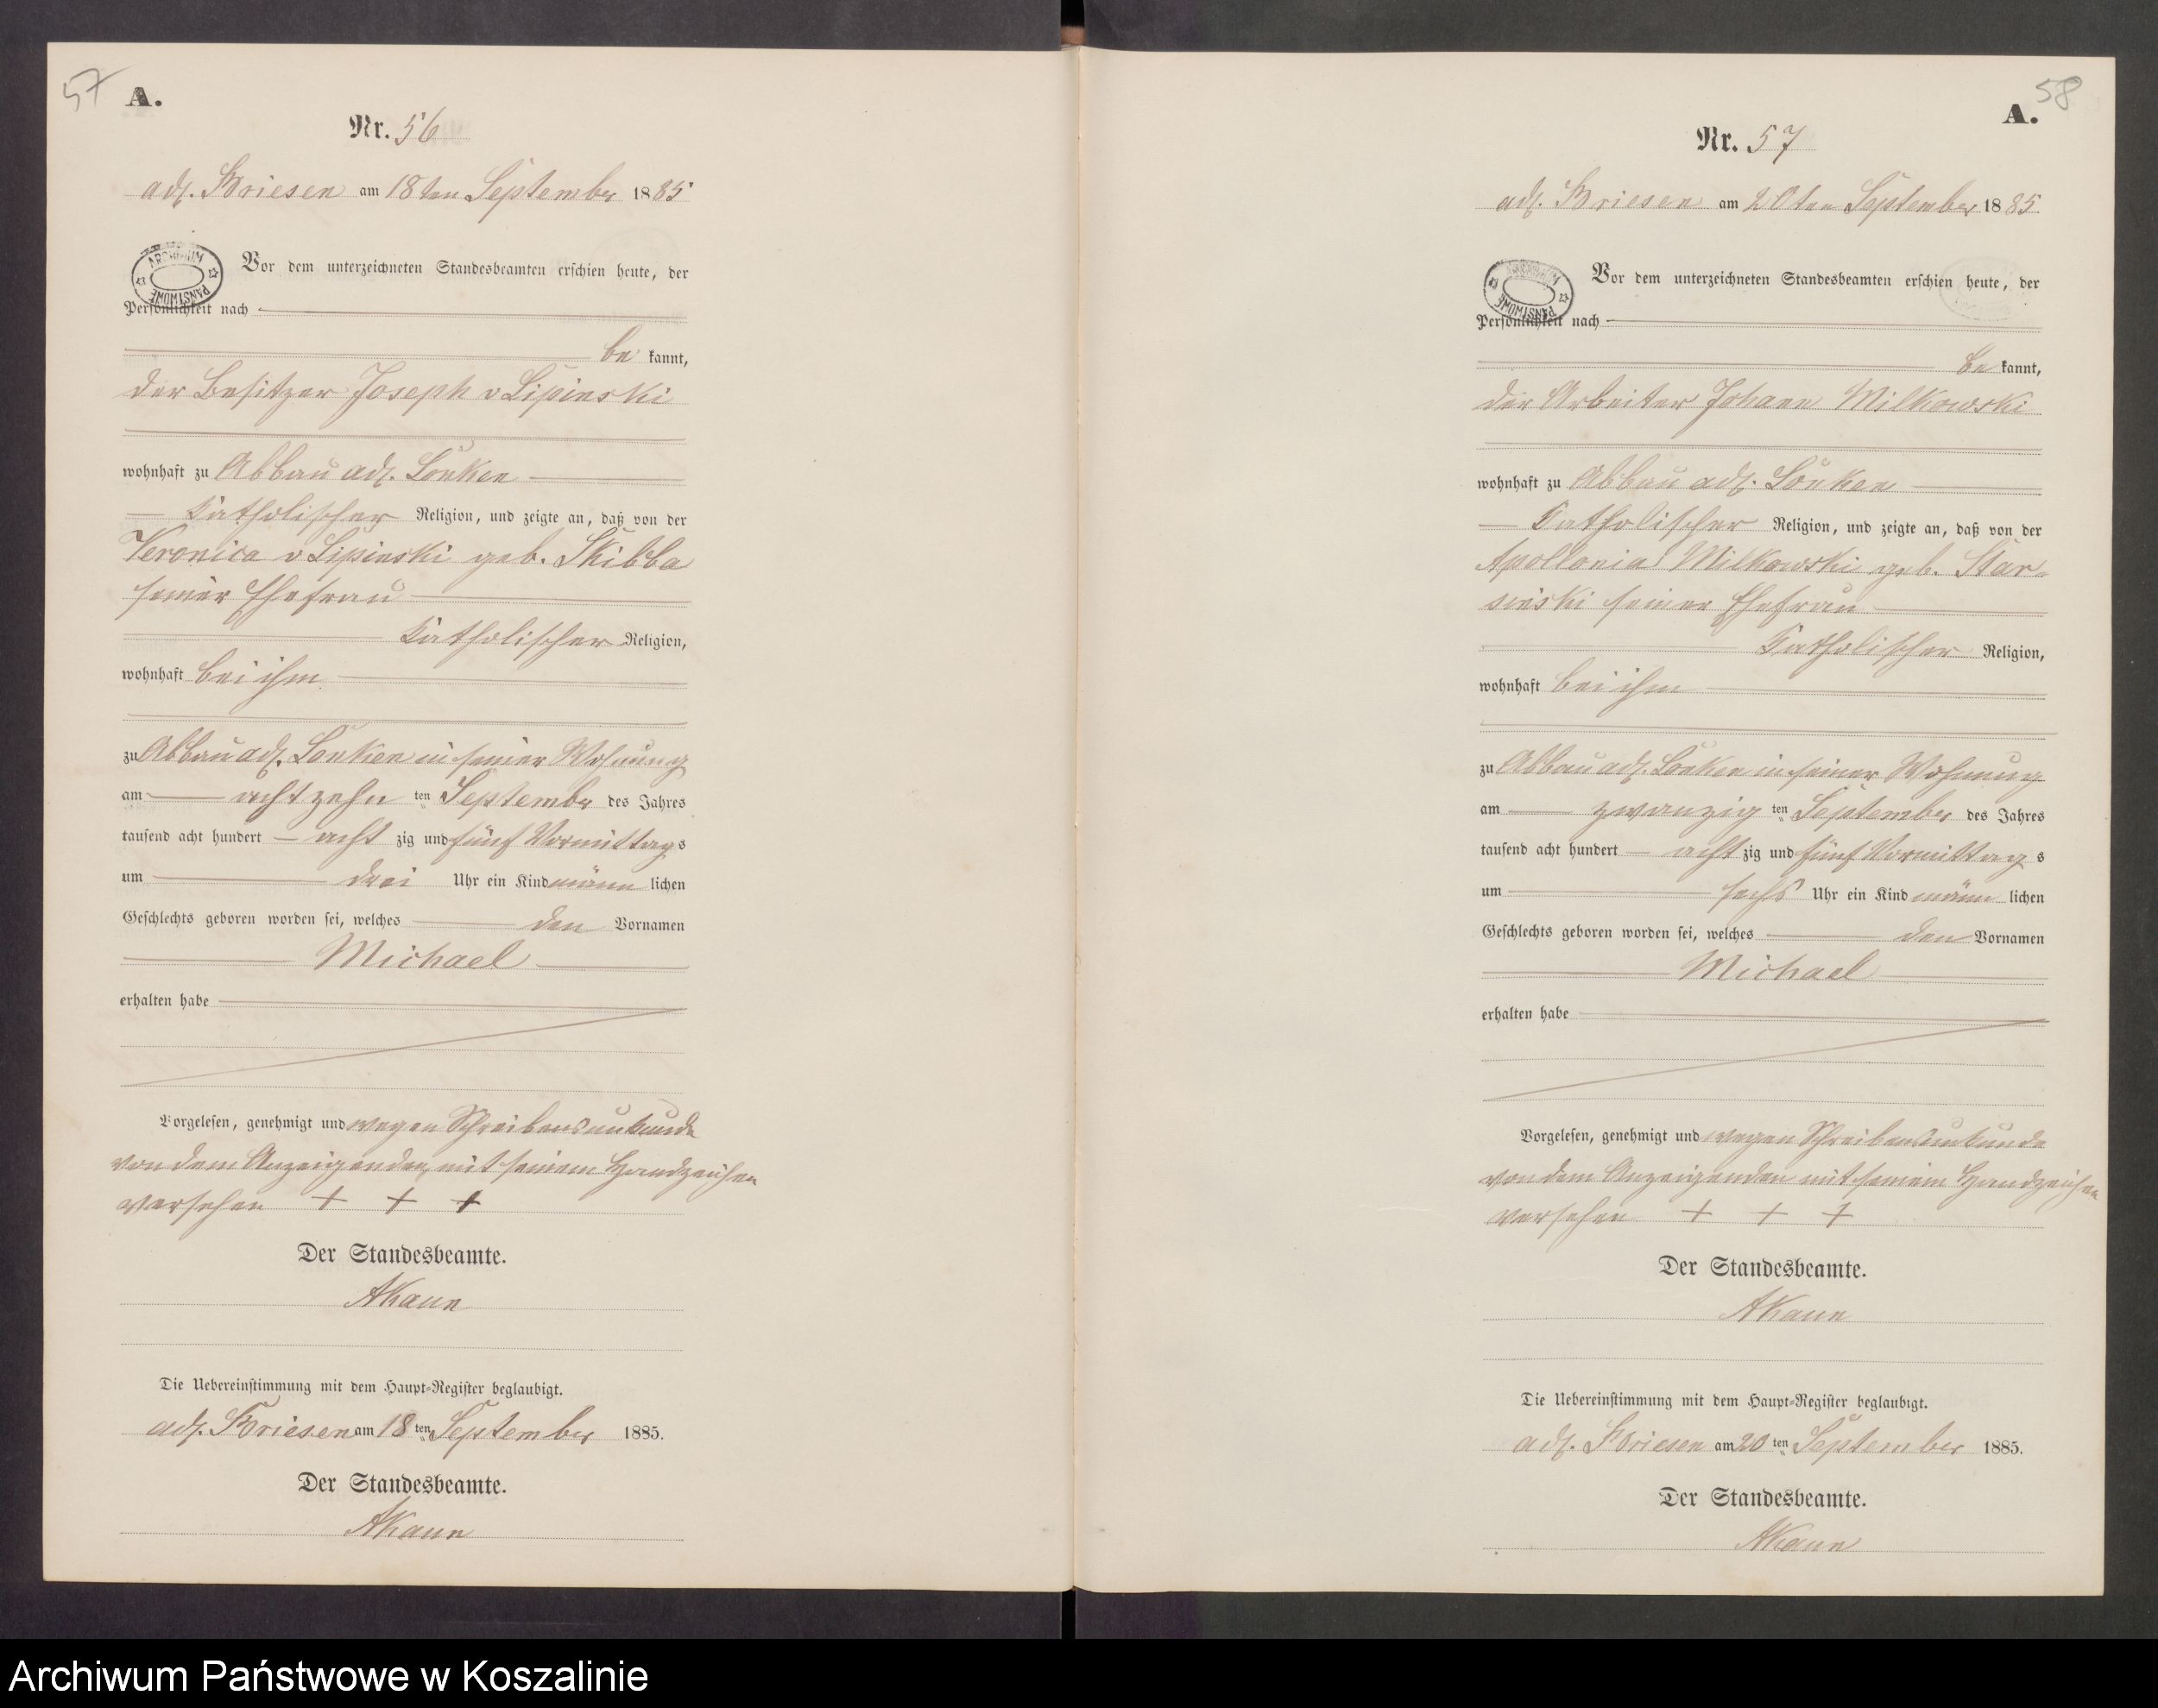 57
A.
Nr. 56
adl. Briesen am 18ten September 1885
ARCHIWUM PAŃSTWOWE
Vor dem unterzeichneten Standesbeamten erschien heute, der
Persönlichkeit nach
be kannt,
der Besitzer Joseph v Lipinski
wohnhaft zu Abbau adl. Lonken
katholischer Religion, und zeigte an, daß von der
Veronica v Lipinski geb. Skibba
seiner Ehefrau
katholischer Religion,
wohnhaft bei ihm
zu Abbau adl. Lonken in seiner Wohnung
am achtzehn ten September des Jahres
tausend acht hundert acht zig und fünf Vormittags
um drei Uhr ein Kind männ lichen
Geschlechts geboren worden sei, welches den Vornamen
Michael
erhalten habe
Vorgelesen, genehmigt und wegen Schreibensunkunde
von dem Anzeigenden mit seinem Handzeichen
versehen + + +
Der Standesbeamte.
AKaun
Die Uebereinstimmung mit dem Haupt-Register beglaubigt.
adl. Briesen am 18 ten September 1885.
Der Standesbeamte.
AKaun
58
A.
Nr. 57
adl. Briesen am 20ten September 1885
ARCHIWUM PAŃSTWOWE
Vor dem unterzeichneten Standesbeamten erschien heute, der
Persönlichkeit nach
be kannt,
der Arbeiter Johann Milkowski
wohnhaft zu Abbau adl. Lonken
katholischer Religion, und zeigte an, daß von der
Apollonia Milkowski geb. Star-
sinski seiner Ehefrau
katholischer Religion,
wohnhaft bei ihm
zu Abbau adl. Lonken in seiner Wohnung
am zwanzig ten September des Jahres
tausend acht hundert acht zig und fünf Vormittag s
um sechs Uhr ein Kind männ lichen
Geschlechts geboren worden sei, welches den Vornamen
Michael
erhalten habe
Vorgelesen, genehmigt und wegen Schreibensunkunde
von dem Anzeigenden mit seinem Handzeichen
versehen + + +
Der Standesbeamte.
AKaun
Die Uebereinstimmung mit dem Haupt-Register beglaubigt.
adl. Briesen am 20 ten September 1885.
Der Standesbeamte.
AKaun
Archiwum Państwowe w Koszalinie